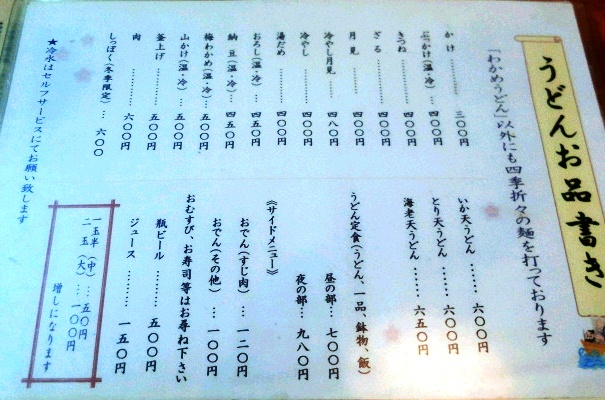 うどんお品書き
「わかめうどん」以外にも四季折々の麺を打っております
かけ………三〇〇円
ぶっかけ(温・冷)…四〇〇円
きつね………四〇〇円
ざる…………四〇〇円
月見…………四〇〇円
冷やし月見…四八〇円
冷やし………四〇〇円
湯だめ………四〇〇円
おろし(温・冷)…四五〇円
納豆(温・冷)…四五〇円
梅わかめ(温・冷)…五〇〇円
山かけ(温・冷)…五〇〇円
釜上げ………五〇〇円
肉……………六〇〇円
しっぽく(冬季限定)…六〇〇
★冷水はセルフサービスにてお願い致します
いか天うどん……六〇〇円
とり天うどん……六〇〇円
海老天うどん……六五〇円
うどん定食(うどん、一品、鉢物、飯)
昼の部…七〇〇円
夜の部…九八〇円
《サイドメニュー》
おでん(すじ肉)…一二〇円
おでん(その他)…一〇〇円
おむすび、お寿司等はお尋ね下さい
瓶ビール………五〇〇円
ジュース………一五〇円
一玉半(中)…五〇円
二玉(大)…一〇〇円
増しになります